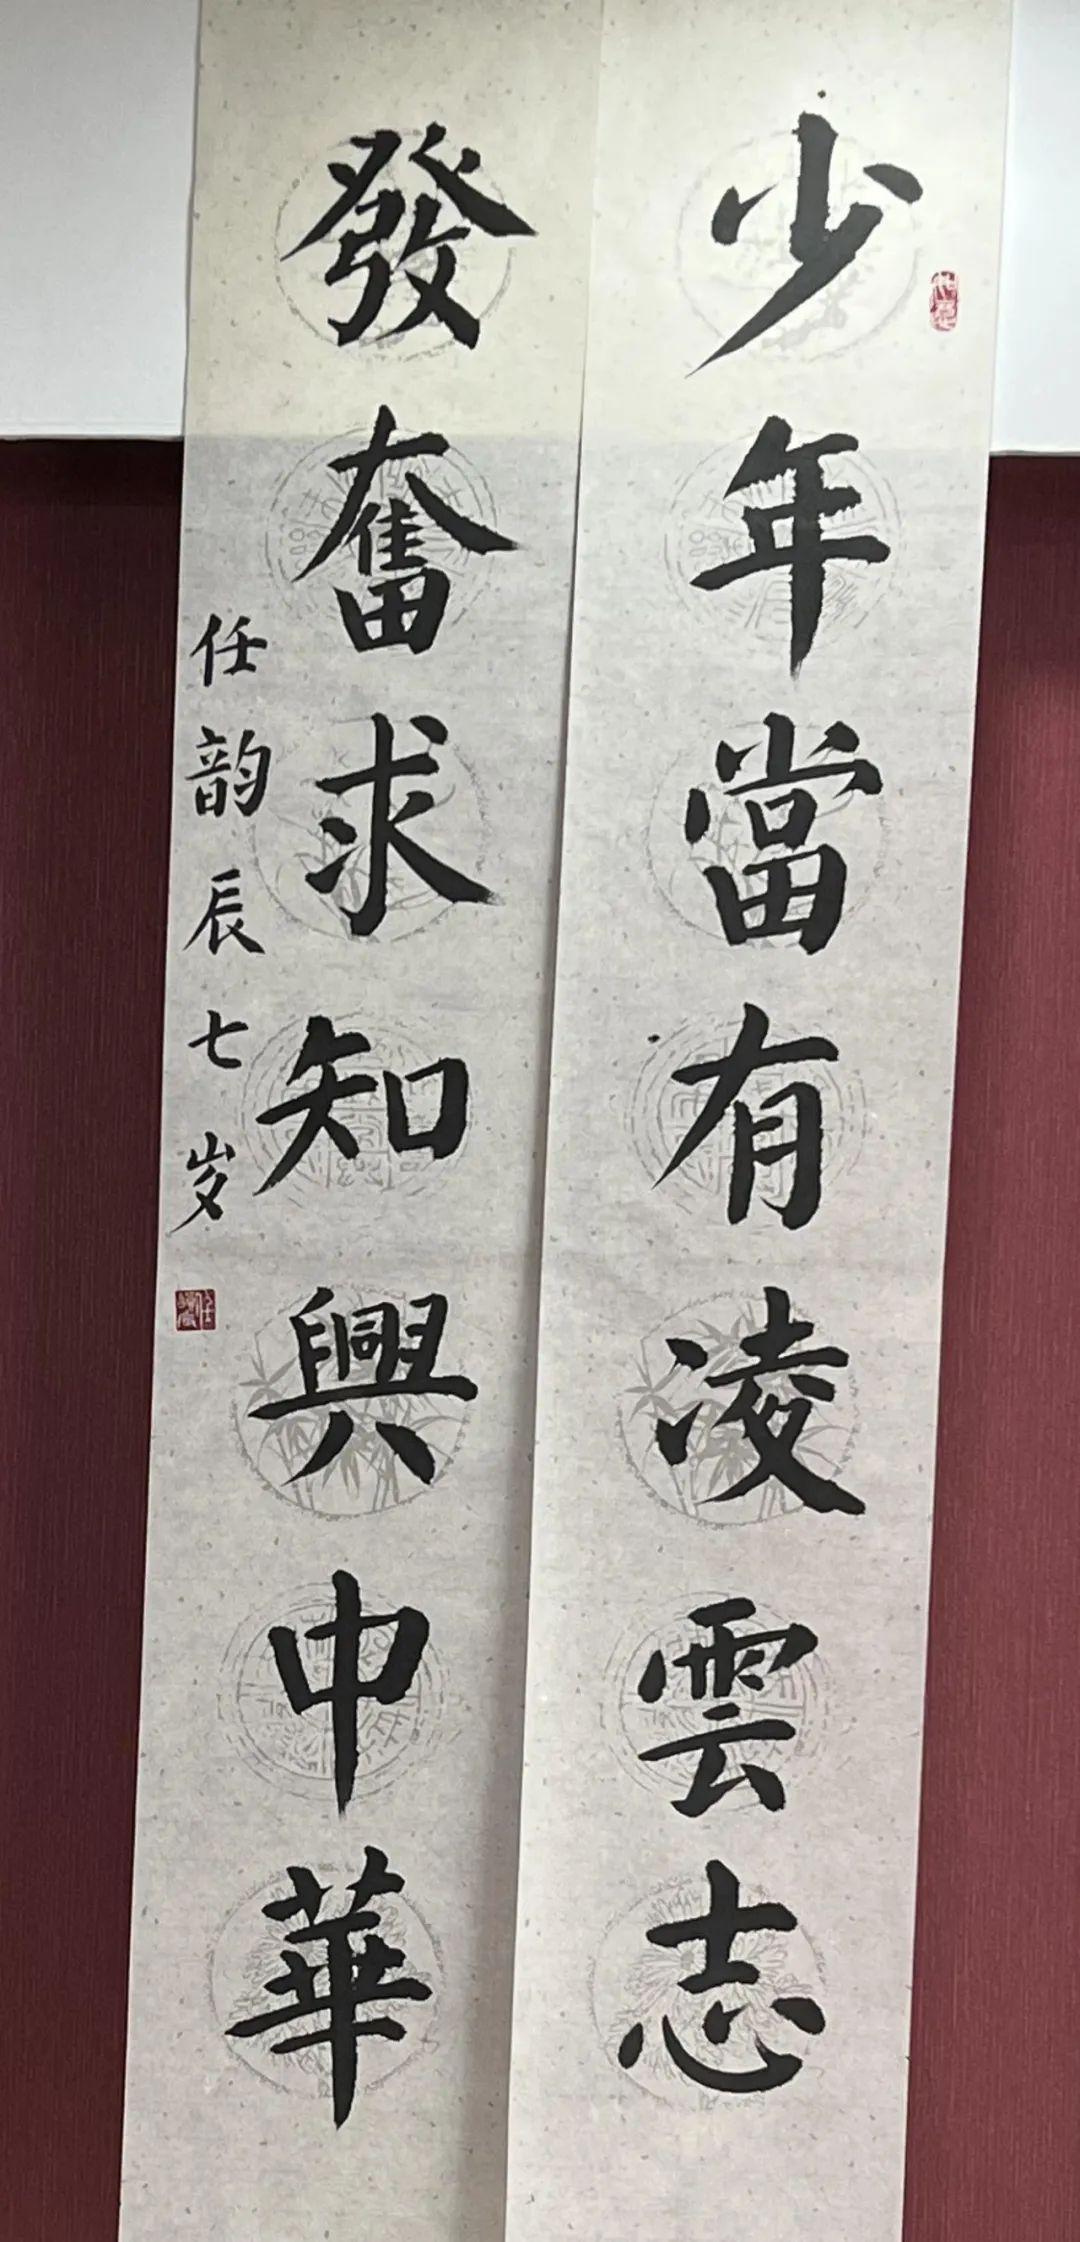 少年當有凌雲志
發奮求知興中華
任韵辰七岁